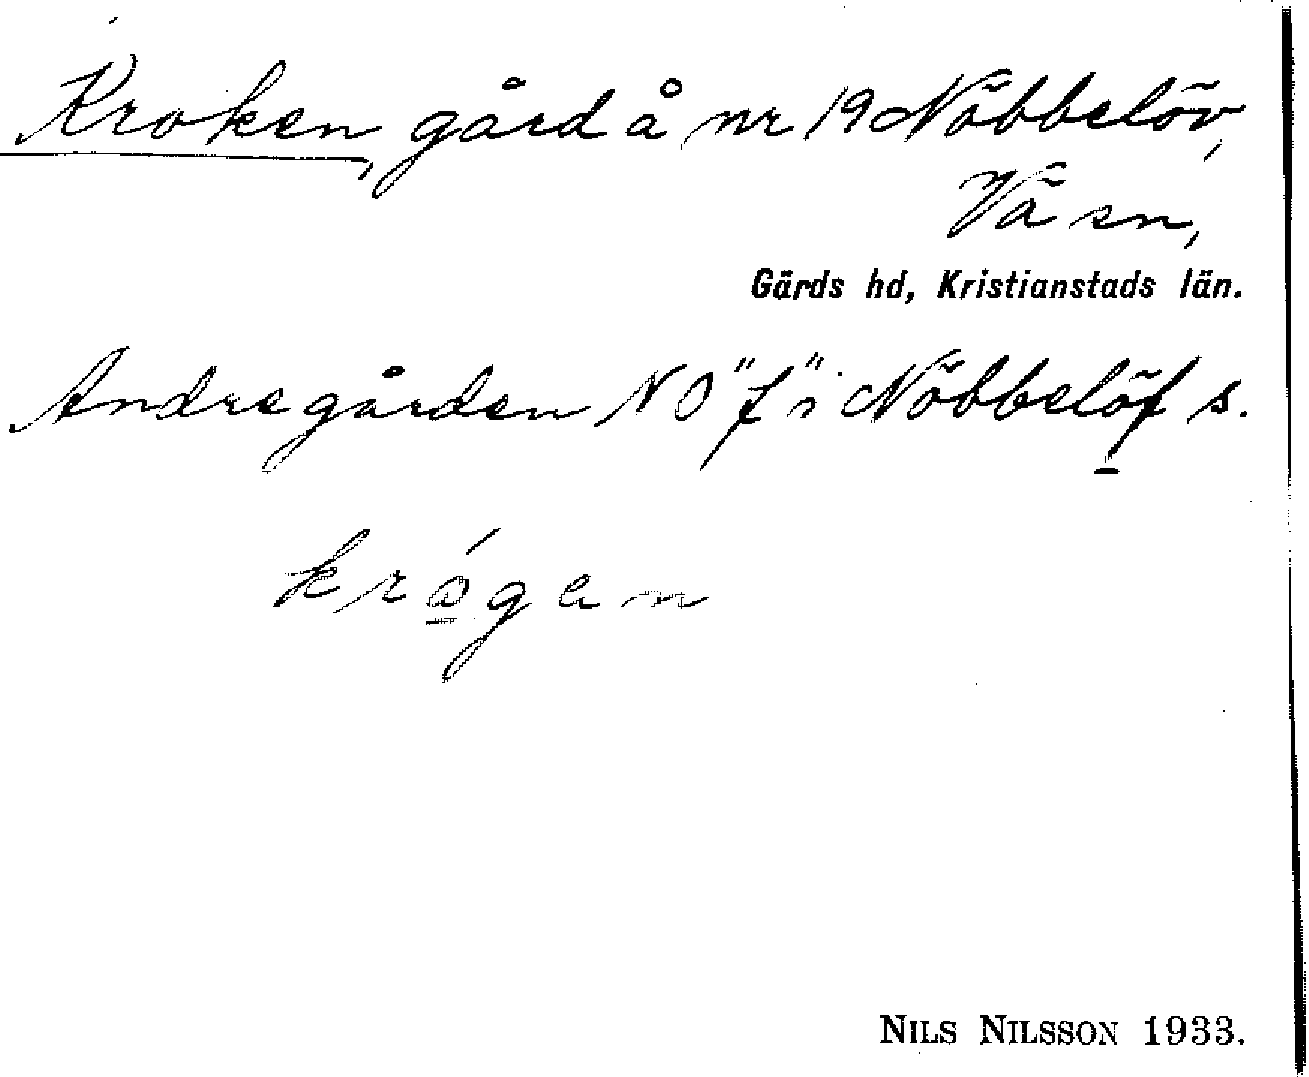 Kroken, gård å nr 19 Nöbbelöv,
Vä sn,
Gärds hd, Kristianstads län.
Andregården NO "f" i Nöbbelöf s.
krógen
NILS NILSSON 1933.